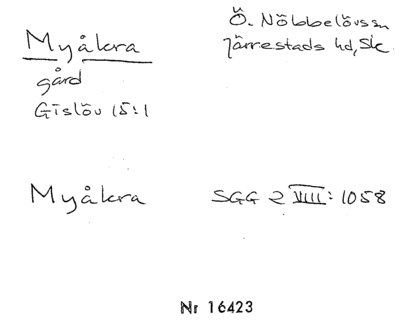 Myåkra
Ö. Nöbbelövs sn
Järrestads hd, Sk.
gård
Gislöv 15:1
Myåkra
SGG 2 VIII: 1058
Nr 16423